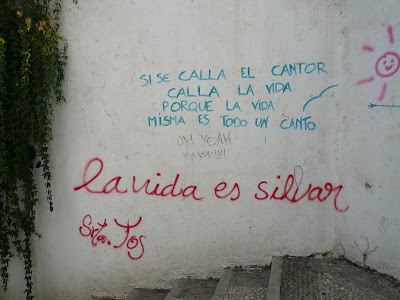 SI SE CALLA EL CANTOR
CALLA LA VIDA
PORQUE LA VIDA
MISMA ES TODO UN CANTO
OH YEAH
la vida es silbar
Srta. Tos